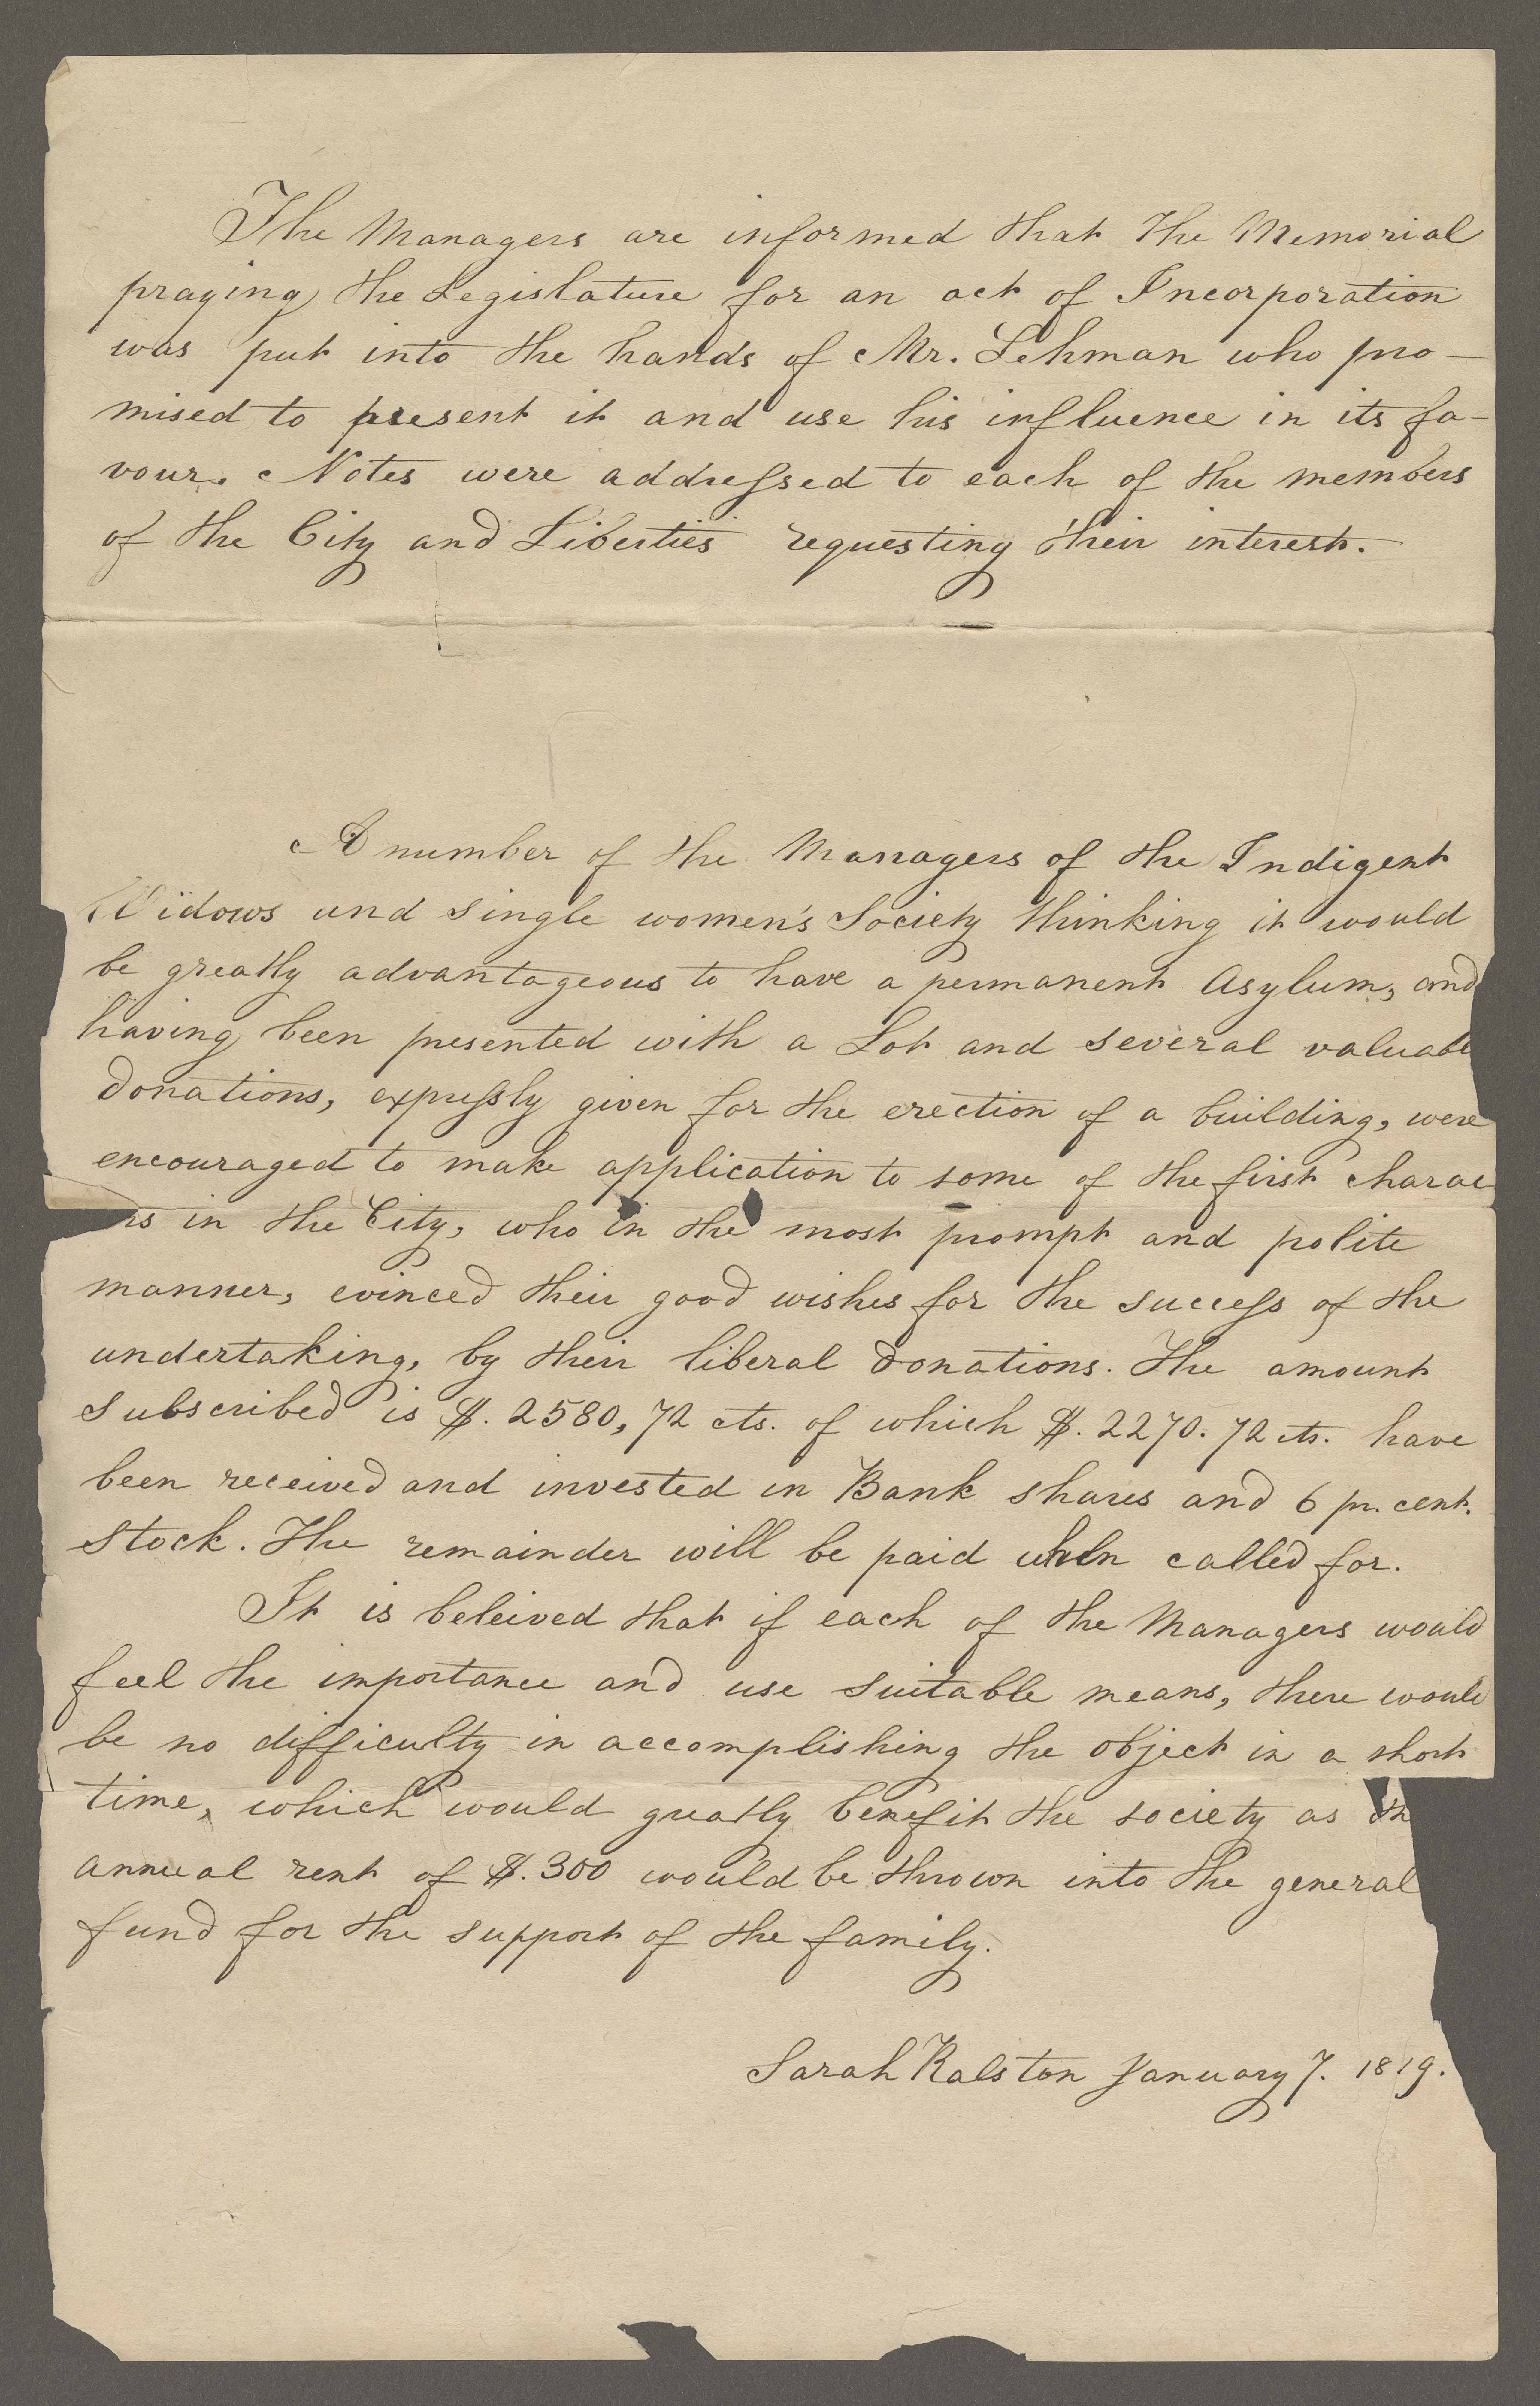 The Managers are informed that the Memorial
praying the Legislature for an act of Incorporation
was put into the hands of Mr. Lehman who pro-
mised to present it and use his influence in its fa-
vour. Notes were addressed to each of the members
of the City and Liberties requesting their interest.
A number of the Managers of the Indigent
Widows and single women's Society thinking it would
be greatly advantageous to have a permanent Asylum, and
having been presented with a Lot and several valuable
donations, expressly given for the erection of a building, were
encouraged to make application to some of the first charac
rs in the City, who in the most prompt and polite
manner, evinced their good wishes for the success of the
undertaking, by their liberal donations. The amount
subscribed is $. 2580,72 cts. of which $. 2270.72 cts. have
been received and invested in Bank shares and 6 pr. cent.
stock. The remainder will be paid when called for.
It is beleived that if each of the Managers would
feel the importance and use suitable means, there would
be no difficulty in accomplishing the object in a short
time, which would greatly benefit the society as th
annual rent of $.300 would be thrown into the general
fund for the support of the family.
Sarah Ralston January 7. 1819.